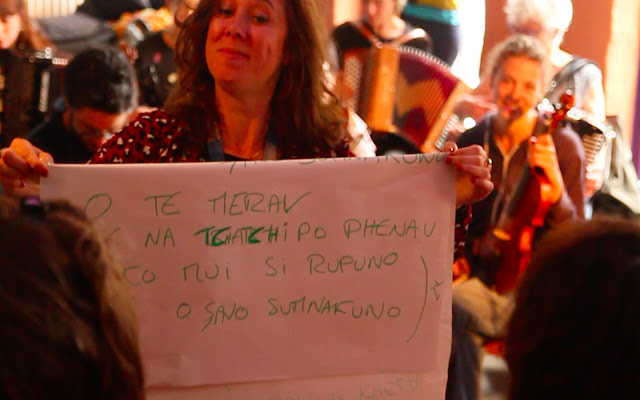 SUMNAKUNO
O TE MERAV
NA TCHATCHIPO PHENAV
CO MUI SI RUPUNO
O SANO SUMNAKUNO